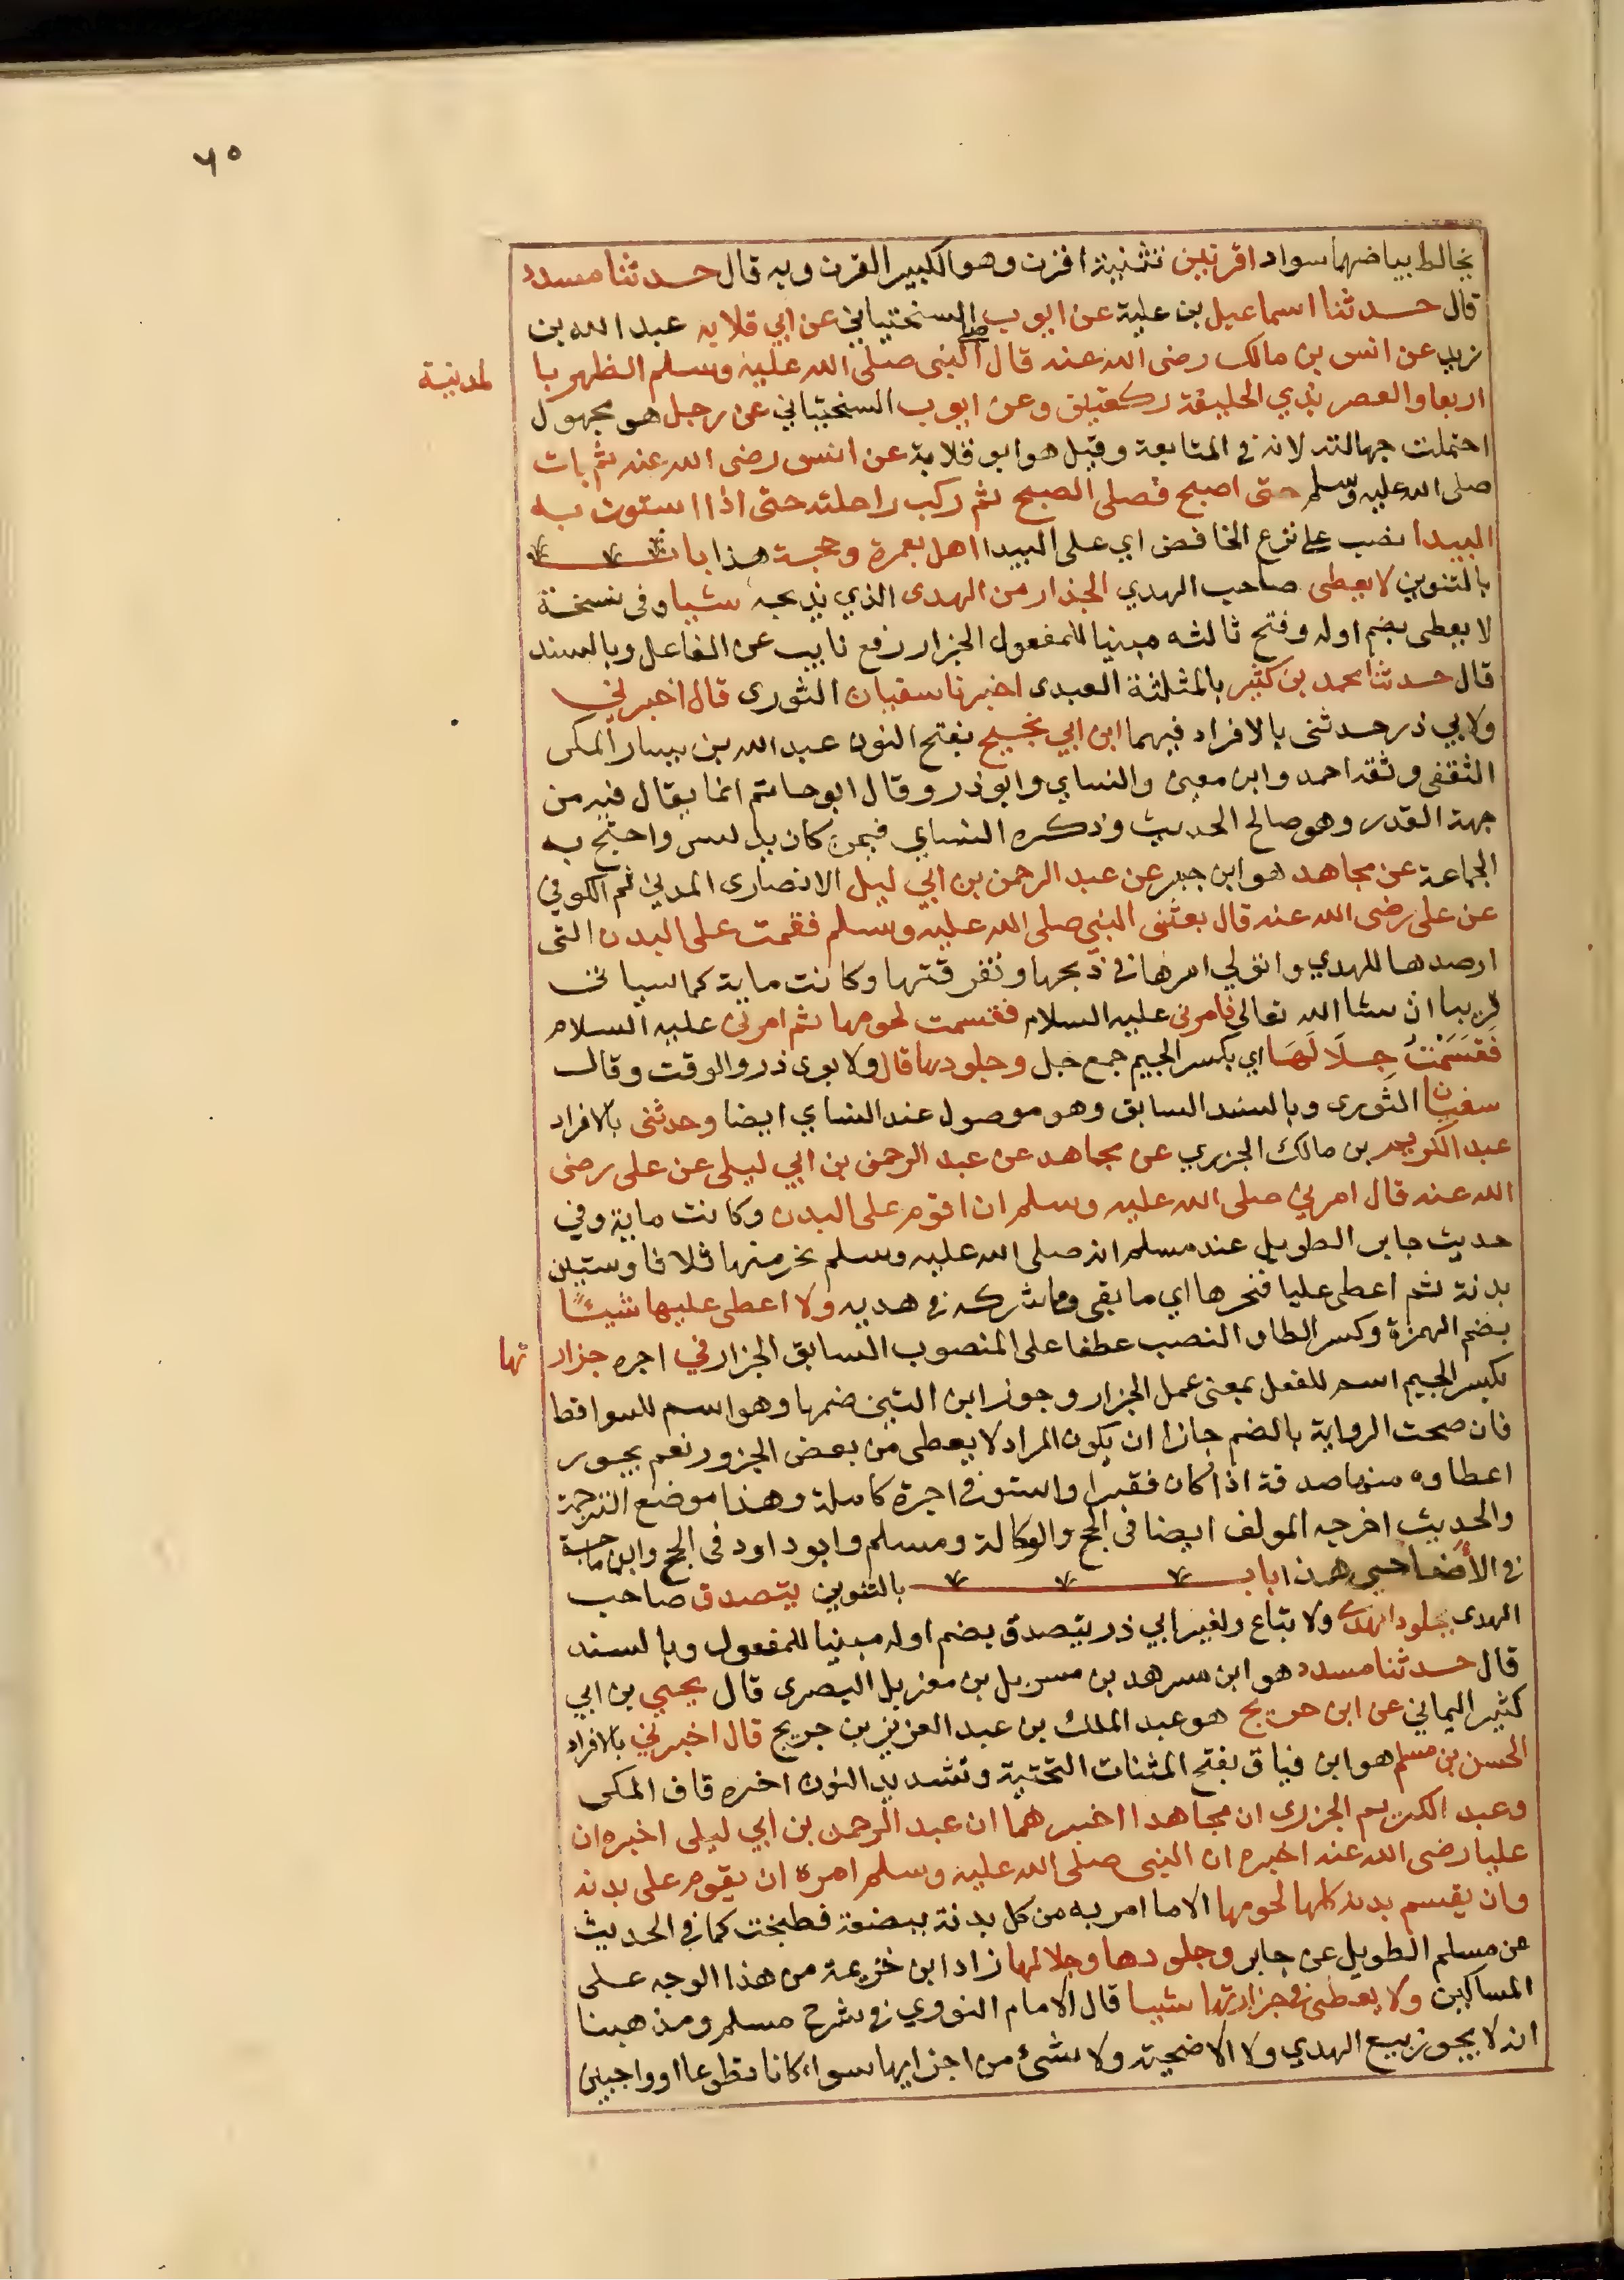 ٦٥
يخالط بياضهما سواد اقرنين تثنية اقرن وهو الكبير القرن وبه قال حدثنا مسدد
قال حدثنا اسماعيل بن علية عن ايوب السختياني عن ابي قلابه عبد الله بن
زيد عن انس بن مالك رضى الله عنه قال صلى النبى صلى الله عليه وسلم الظهر با لمدينة
اربعا والعصر بذي الحليفة ركعتين وعن ايوب السختياني عن رجل هو مجهول
احتملت جهالته لانه في المتابعة وقيل هو ابو قلابة عن انس رضى الله عنه ثم بات
صلى الله عليه وسلم حتى اصبح فصلى الصبح ثم ركب راحلته حتى اذا استوت به
البيدا نصب على نزع الخافض اي على البيدا اهل بعمرة وحجة هذا باب
بالتنوين لا يعطى صاحب الهدي الجزار من الهدى الذي يذبحه شيا وفى نسخة
لا يعطى بضم اوله وفتح ثالثه مبنيا للمفعول الجزار رفع نايب عن الفاعل وبالسند
قال حدثنا محمد بن كثير بالمثلثة العبدى اخبرنا سفيان الثورى قال اخبرني
ولابي ذر حدثنى بالافراد فيهما ابن ابي نجيح بفتح النون عبد الله بن يسار المكى
الثقفى وثقه احمد وابن معين والنساي وابو ذر وقال ابو حاتم انما يقال فيه من
جهة القدر وهو صالح الحديث وذكره النساي فيمن كان يدلس واحتج به
الجماعة عن مجاهد هو ابن جبر عن عبد الرحمن بن ابي ليلى الانصارى المدني ثم الكوفي
عن على رضى الله عنه قال بعثنى النبي صلى الله عليه وسلم فقمت على البدن التى
ارصدها للهدي واتولي امرها في ذبحها وتفرقتها وكانت ماية كما سياتى
قريبا ان شا الله تعالى فامرنى عليه السلام فقسمت لحومها ثم امرنى عليه السلام
فَقَسَمْتُ جِلَالَهَا اي بكسر الجيم جمع جل وجلودها قال ولابوى ذر والوقت وقال
سفيان الثورى وبالسند السابق وهو موصول عند النساي ايضا وحدثنى بالافراد
عبد الكريم بن مالك الجزري عن مجاهد عن عبد الرحمن بن ابي ليلى عن على رضى
الله عنه قال امرني صلى الله عليه وسلم ان اقوم على البدن وكانت ماية وفي
حديث جابر الطويل عند مسلم انه صلى الله عليه وسلم نحر منها ثلاثا وستين
بدنة ثم اعطى عليا فنحرها اي ما بقى وما شركه في هديه ولا اعطى عليها شيئًا
بضم الهمزة وكسر الطا والنصب عطفا على المنصوب السابق الجزار في اجره جزار تها
بكسر الجيم اسم للفعل بمعنى عمل الجزار وجوز ابن التين ضمها وهو اسم للسواقط
فان صحت الرواية بالضم جازا ان يكون المراد لا يعطى من بعض الجزور نعم يجوز
اعطاوه منها صدقة اذا كان فقيرا واستوفى اجرة كاملة وهذا موضع الترجمة
والحديث اخرجه المولف ايضا فى الحج والوكالة ومسلم وابو داود فى الحج وابن ماجة
في الأضاحي هذا باب بالتنوين يتصدق صاحب
الهدى بجلود الهدى ولا تباع ولغير ابي ذر يتصدق بضم اوله مبنيا للمفعول وبالسند
قال حدثنا مسدد هو ابن سرهد بن مسربل بن مغربل البصرى قال يحيي بن ابي
كثير اليماني عن ابن جريج هو عبد الملك بن عبد العزيز بن جريج قال اخبرني بالافراد
الحسن بن مسلم هو ابن فياق بفتح المثنات التحتية وتشديد النون اخره قاف المكى
وعبد الكريم الجزرى ان مجاهدا اخبرهما ان عبد الرحمن بن ابي ليلى اخبره ان
عليا رضى الله عنه اخبره ان النبى صلى الله عليه وسلم امره ان يقوم على بدنه
وان يقسم بدنه كلها لحومها الا ما امر به من كل بدنة ببضعة فطبخت كما في الحديث
من مسلم الطويل عن جابر وجلودها وجلالها زاد ابن خزيمة من هذا الوجه على
المساكين ولا يعطى في جزارتها شيا قال الامام النووي في شرح مسلم ومذهبنا
انه لا يجوز بيع الهدي ولا الاضحية ولا شئ من اجزايها سواء كانا تطوعا او واجبين